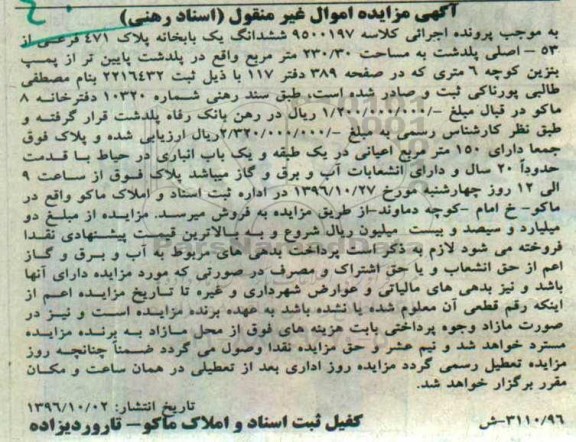 آگهی مزایده اموال غیر منقول (اسناد رهنی)
به موجب پرونده اجرائی کلاسه ۹۵۰۰۱۹۷ ششدانگ یک بابخانه پلاک ۴۷۱ فرعی از
۵۳ – اصلی پلدشت به مساحت ۲۳۰/۳۰ متر مربع واقع در پلدشت پایین تر از پمپ
بنزین کوچه ۶ متری که در صفحه ۳۸۹ دفتر ۱۱۷ با ذیل ثبت ۲۲۱۶۴۳۲ بنام مصطفی
طالبی پورناکی ثبت و صادر شده است، طبق سند رهنی شماره ۱۰۳۲۰ دفترخانه ۸
ماکو در قبال مبلغ –/۱/۲۰۰/۰۰۰/۰۰۰ ریال در رهن بانک رفاه پلدشت قرار گرفته و
طبق نظر کارشناس رسمی به مبلغ –/۲/۳۲۰/۰۰۰/۰۰۰ریال ارزیابی شده و پلاک فوق
جمعا دارای ۱۵۰ متر مربع اعیانی در یک طبقه و یک باب انباری در حیاط با قدمت
حدوداً ۲۰ سال و دارای انشعابات آب و برق و گاز میباشد پلاک فوق از ساعت ۹
الی ۱۲ روز چهارشنبه مورخ ۱۳۹۶/۱۰/۲۷ در اداره ثبت اسناد و املاک ماکو واقع در
ماکو– خ امام –کوچه دماوند–از طریق مزایده به فروش میرسد. مزایده از مبلغ دو
میلیارد و سیصد و بیست میلیون ریال شروع و به بالاترین قیمت پیشنهادی نقدا
فروخته می شود لازم به ذکر است پرداخت بدهی های مربوط به آب و برق و گاز
اعم از حق انشعاب و یا حق اشتراک و مصرف در صورتی که مورد مزایده دارای آنها
باشد و نیز بدهی های مالیاتی و عوارض شهرداری و غیره تا تاریخ مزایده اعم از
اینکه رقم قطعی آن معلوم شده یا نشده باشد به عهده برنده مزایده است و نیز در
صورت مازاد وجوه پرداختی بابت هزینه های فوق از محل مازاد به برنده مزایده
مسترد خواهد شد و نیم عشر و حق مزایده نقدا وصول می گردد ضمناً چنانچه روز
مزایده تعطیل رسمی گردد مزایده روز اداری بعد از تعطیلی در همان ساعت و مکان
مقرر برگزار خواهد شد.
تاریخ انتشار: ۱۳۹۶/۱۰/۰۲
۳۱۱۰/۹۶–ش کفیل ثبت اسناد و املاک ماکو– قاروردیزاده